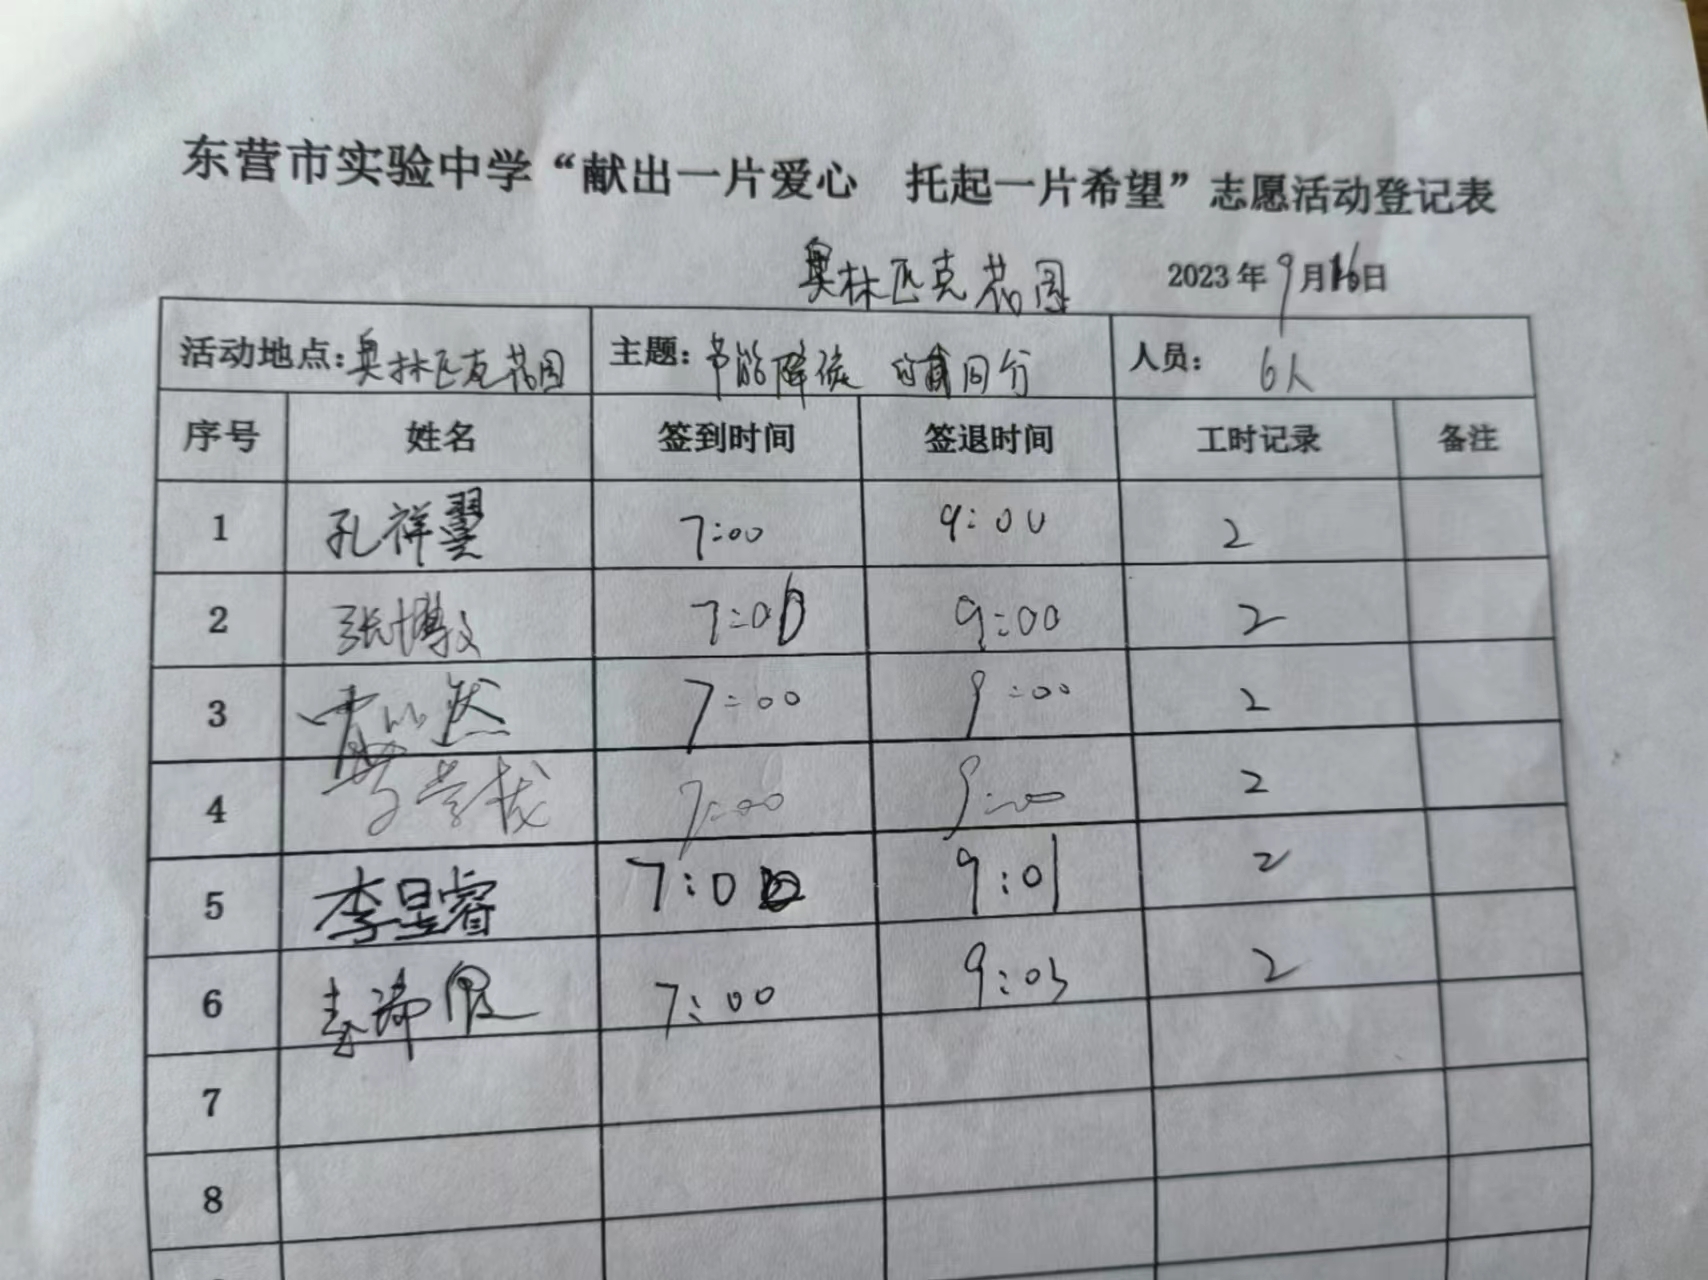 东营市实验中学“献出一片爱心 托起一片希望”志愿活动登记表
奥林匹克花园 2023年9月16日
活动地点：奥林匹克花园 主题：节能降碳 同行 人员：6人
序号 姓名 签到时间 签退时间 工时记录 备注
1 孔祥翼 7:00 9:00 2
2 张博文 7:00 9:00 2
3 7:00 9:00 2
4 7:00 9:00 2
5 李星睿 7:00 9:01 2
6 7:00 9:03 2
7
8